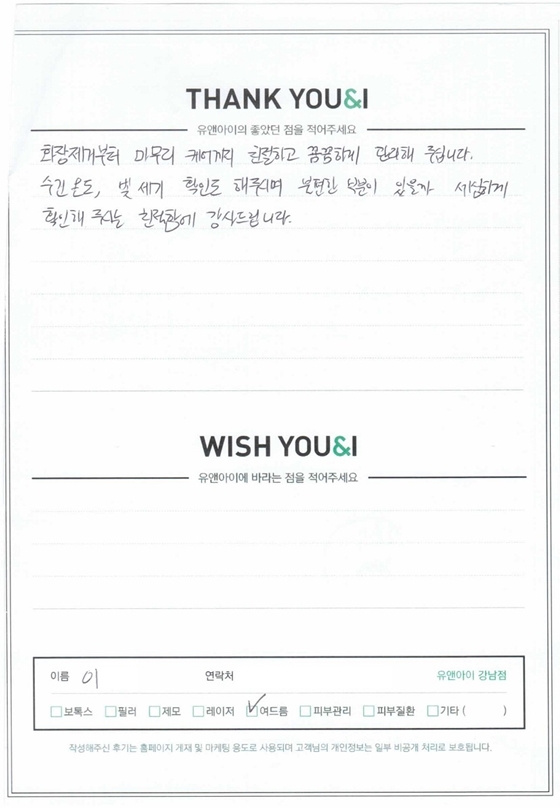 THANK YOU&I
유앤아이의 좋았던 점을 적어주세요
화장제거부터 마무리 케어까지 친절하고 꼼꼼하게 관리해 주십니다.
수건 온도, 빛 세기 확인도 해주시며 불편한 부분이 있을까 세심하게
확인해 주시는 친절함에 감사드립니다.
WISH YOU&I
유앤아이에 바라는 점을 적어주세요
이름 이 연락처 유앤아이 강남점
보톡스 필러 제모 레이저 여드름 피부관리 피부질환 기타 ( )
작성해주신 후기는 홈페이지 게재 및 마케팅 용도로 사용되며 고객님의 개인정보는 일부 비공개 처리로 보호됩니다.